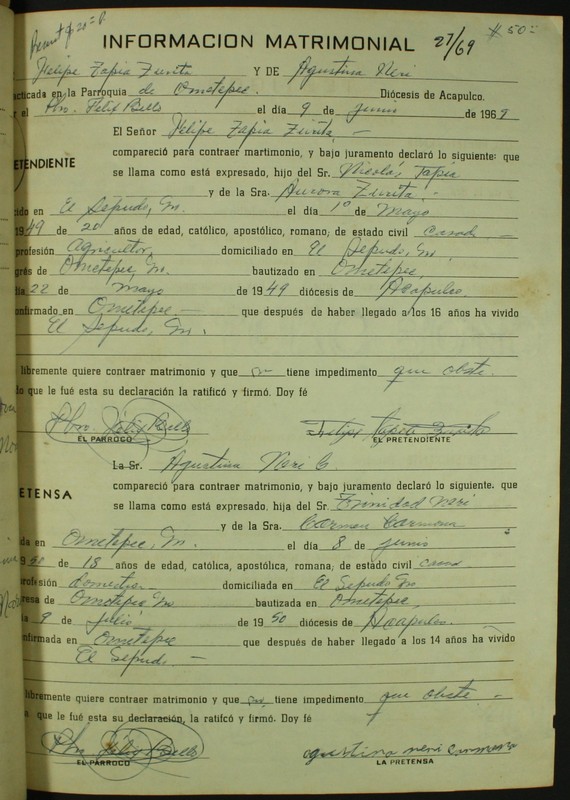 $ 50=
27/69
INFORMACION MATRIMONIAL
Felipe Zapia Zurita Y DE Agustina Neri
acticada en la Parroquia de Ometepec. Diócesis de Acapulco.
r el Pbro. Felix Bello el día 9 de junio de 1969
El Señor Felipe Zapia Zurita,
compareció para contraer martimonio, y bajo juramento declaró lo siguiente: que
ETENDIENTE se llama como está expresado, hijo del Sr. Nicolás Tapia
y de la Sra. Aurora Zurita.
ido en El Sepudo, Gro. el día 1º de Mayo
1949 de 20 años de edad, católico, apostólico, romano; de estado civil Casado
profesión agricultor, domiciliado en El Sepudo, Gro.
grés de Ometepec, Gro. bautizado en Ometepec,
día 22 de mayo de 1949 diócesis de Acapulco.
onfirmado en Ometepec que después de haber llegado a los 16 años ha vivido
El Sepudo, Gro.
libremente quiere contraer matrimonio y que no tiene impedimento que obste.
do que le fué esta su declaración la ratificó y firmó. Doy fé
Pbro. Félix Bello Felipe Zurita
EL PARROCO EL PRETENDIENTE
La Sr. Agustina Neri C.
compareció para contraer matrimonio, y bajo juramento declaró lo siguiente. que
ETENSA se llama como está expresado, hija del Sr. Trinidad Neri
y de la Sra. Carmen Carmona
da en Ometepec, Gro. el día 8 de junio
950 de 18 años de edad, católica, apostólica, romana; de estado civil casada
profesión domestica domiciliada en El Sepudo Gro
resa de Ometepec, Gro bautizada en Ometepec,
a 9 de julio de 1950 diócesis de Acapulco.
nfirmada en Ometepec que después de haber llegado a los 14 años ha vivido
El Sepudo.
libremente quiere contraer matrimonio y que no tiene impedimento que obste
a que le fué esta su declaración, la ratifcó y firmó. Doy fé
Pbro. Félix Bello agustina neri carmona
EL PARROCO LA PRETENSA